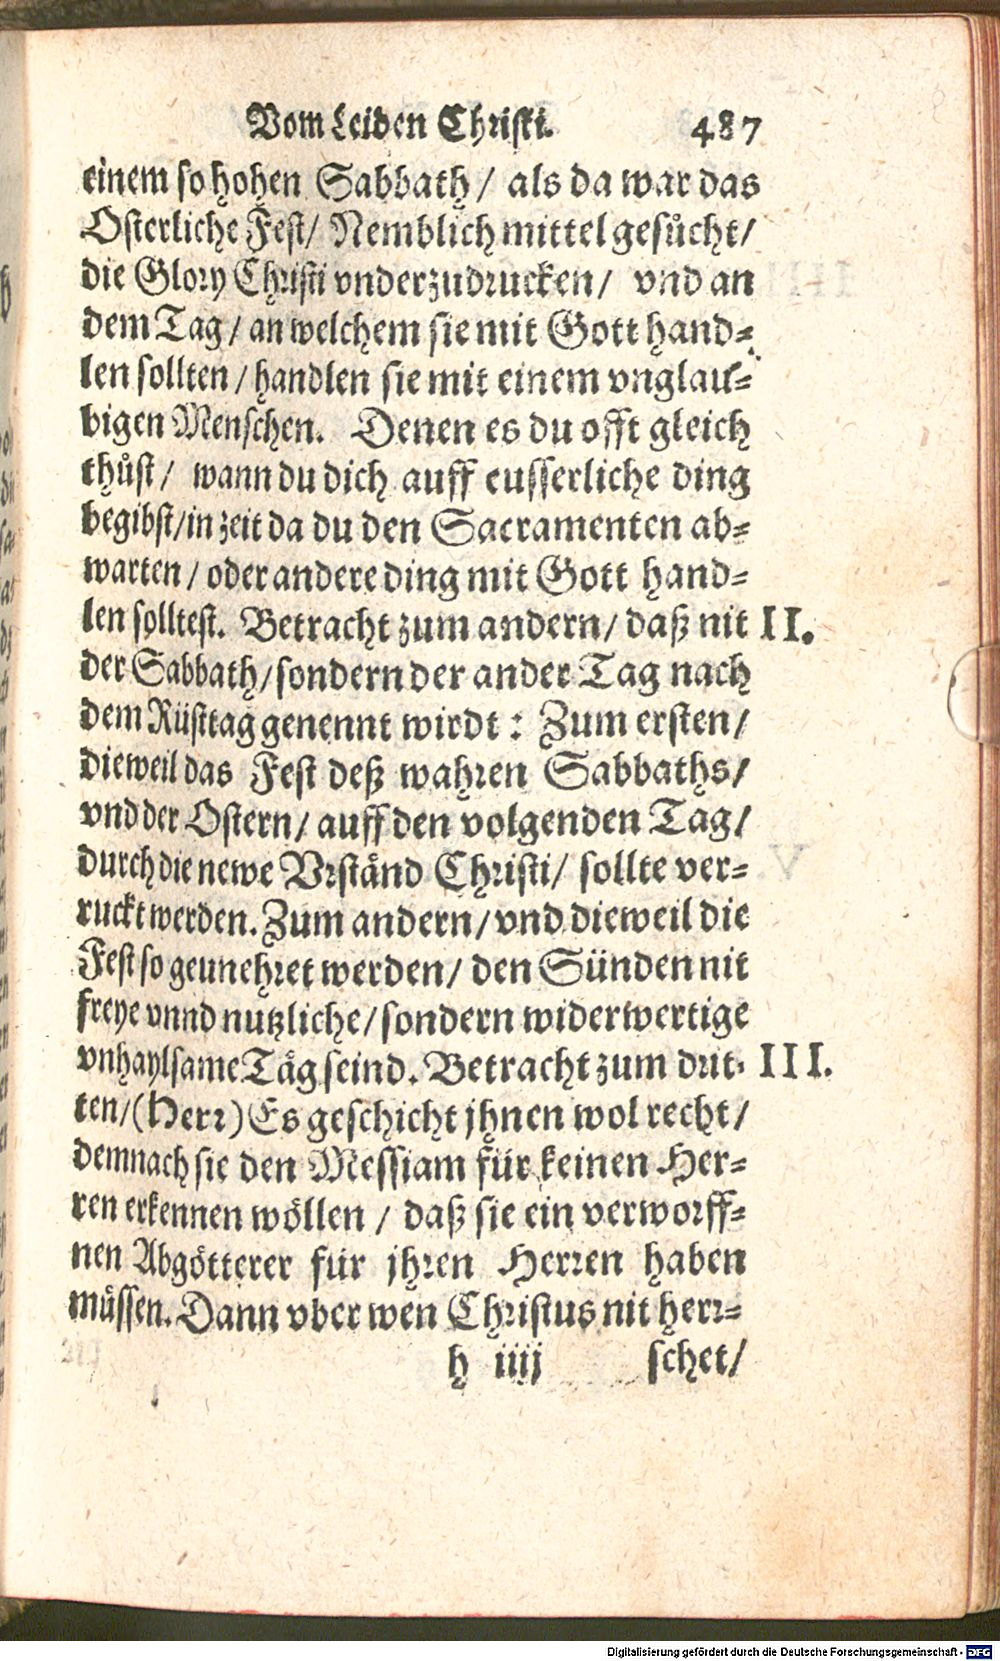 Vom Leiden Christi. 487
einem so hohen Sabbath / als da war das
Osterliche Fest / Nemblich mittel gesůcht /
die Glory Christi vnderzudrucken / vnd an
dem Tag / an welchem sie mit Gott hand-
len sollten / handlen sie mit einem vnglau-
bigen Menschen. Denen es du offt gleich
thůst / wann du dich auff eusserliche ding
begibst / in zeit da du den Sacramenten ab-
warten / oder andere ding mit Gott hand-
len solltest. Betracht zum andern / daß nit II.
der Sabbath / sondern der ander Tag nach
dem Rüsttag genennt wirdt : Zum ersten /
dieweil das Fest deß wahren Sabbaths /
vnd der Ostern / auff den volgenden Tag /
durch die newe Vrständ Christi / sollte ver-
ruckt werden. Zum andern / vnd dieweil die
Fest so geunehret werden / den Sünden nit
freye vnnd nutzliche / sondern widerwertige
vnhaylsame Täg seind. Betracht zum drit- III.
ten / (Herr) Es geschicht jhnen wol recht /
demnach sie den Messiam für keinen Her-
ren erkennen wöllen / daß sie ein verworff-
nen Abgötterer für jhren Herren haben
müssen. Dann vber wen Christus nit herr-
h iiij schet /
Digitalisierung gefördert durch die Deutsche Forschungsgemeinschaft - DFG